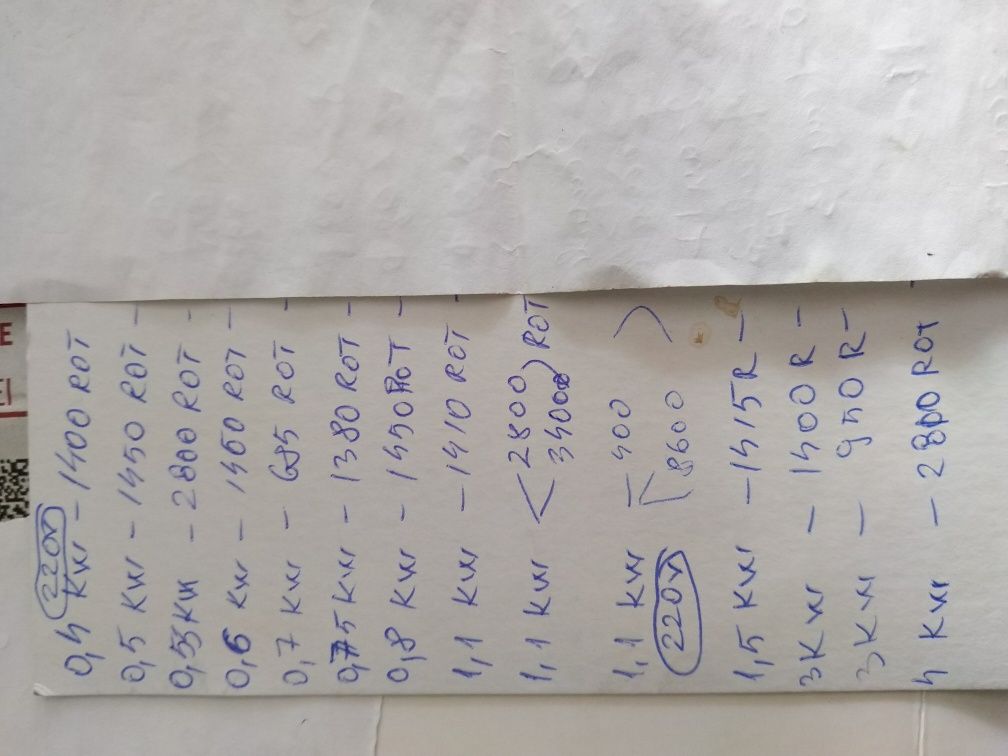 220V
0,4 KW - 1400 ROT
0,5 KW - 1450 ROT -
0,55 KW - 2800 ROT -
0,6 KW - 1450 ROT -
0,7 KW - 685 ROT -
0,75 KW - 1380 ROT -
0,8 KW - 1450 ROT -
1,1 KW - 1410 ROT -
1,1 KW < 2800
3400 ) ROT
1,1 KW - 400
220V 8600 >
1,5 KW - 1415 R -
3 KW - 1400 R -
3 KW - 950 R -
4 KW - 2800 ROT -